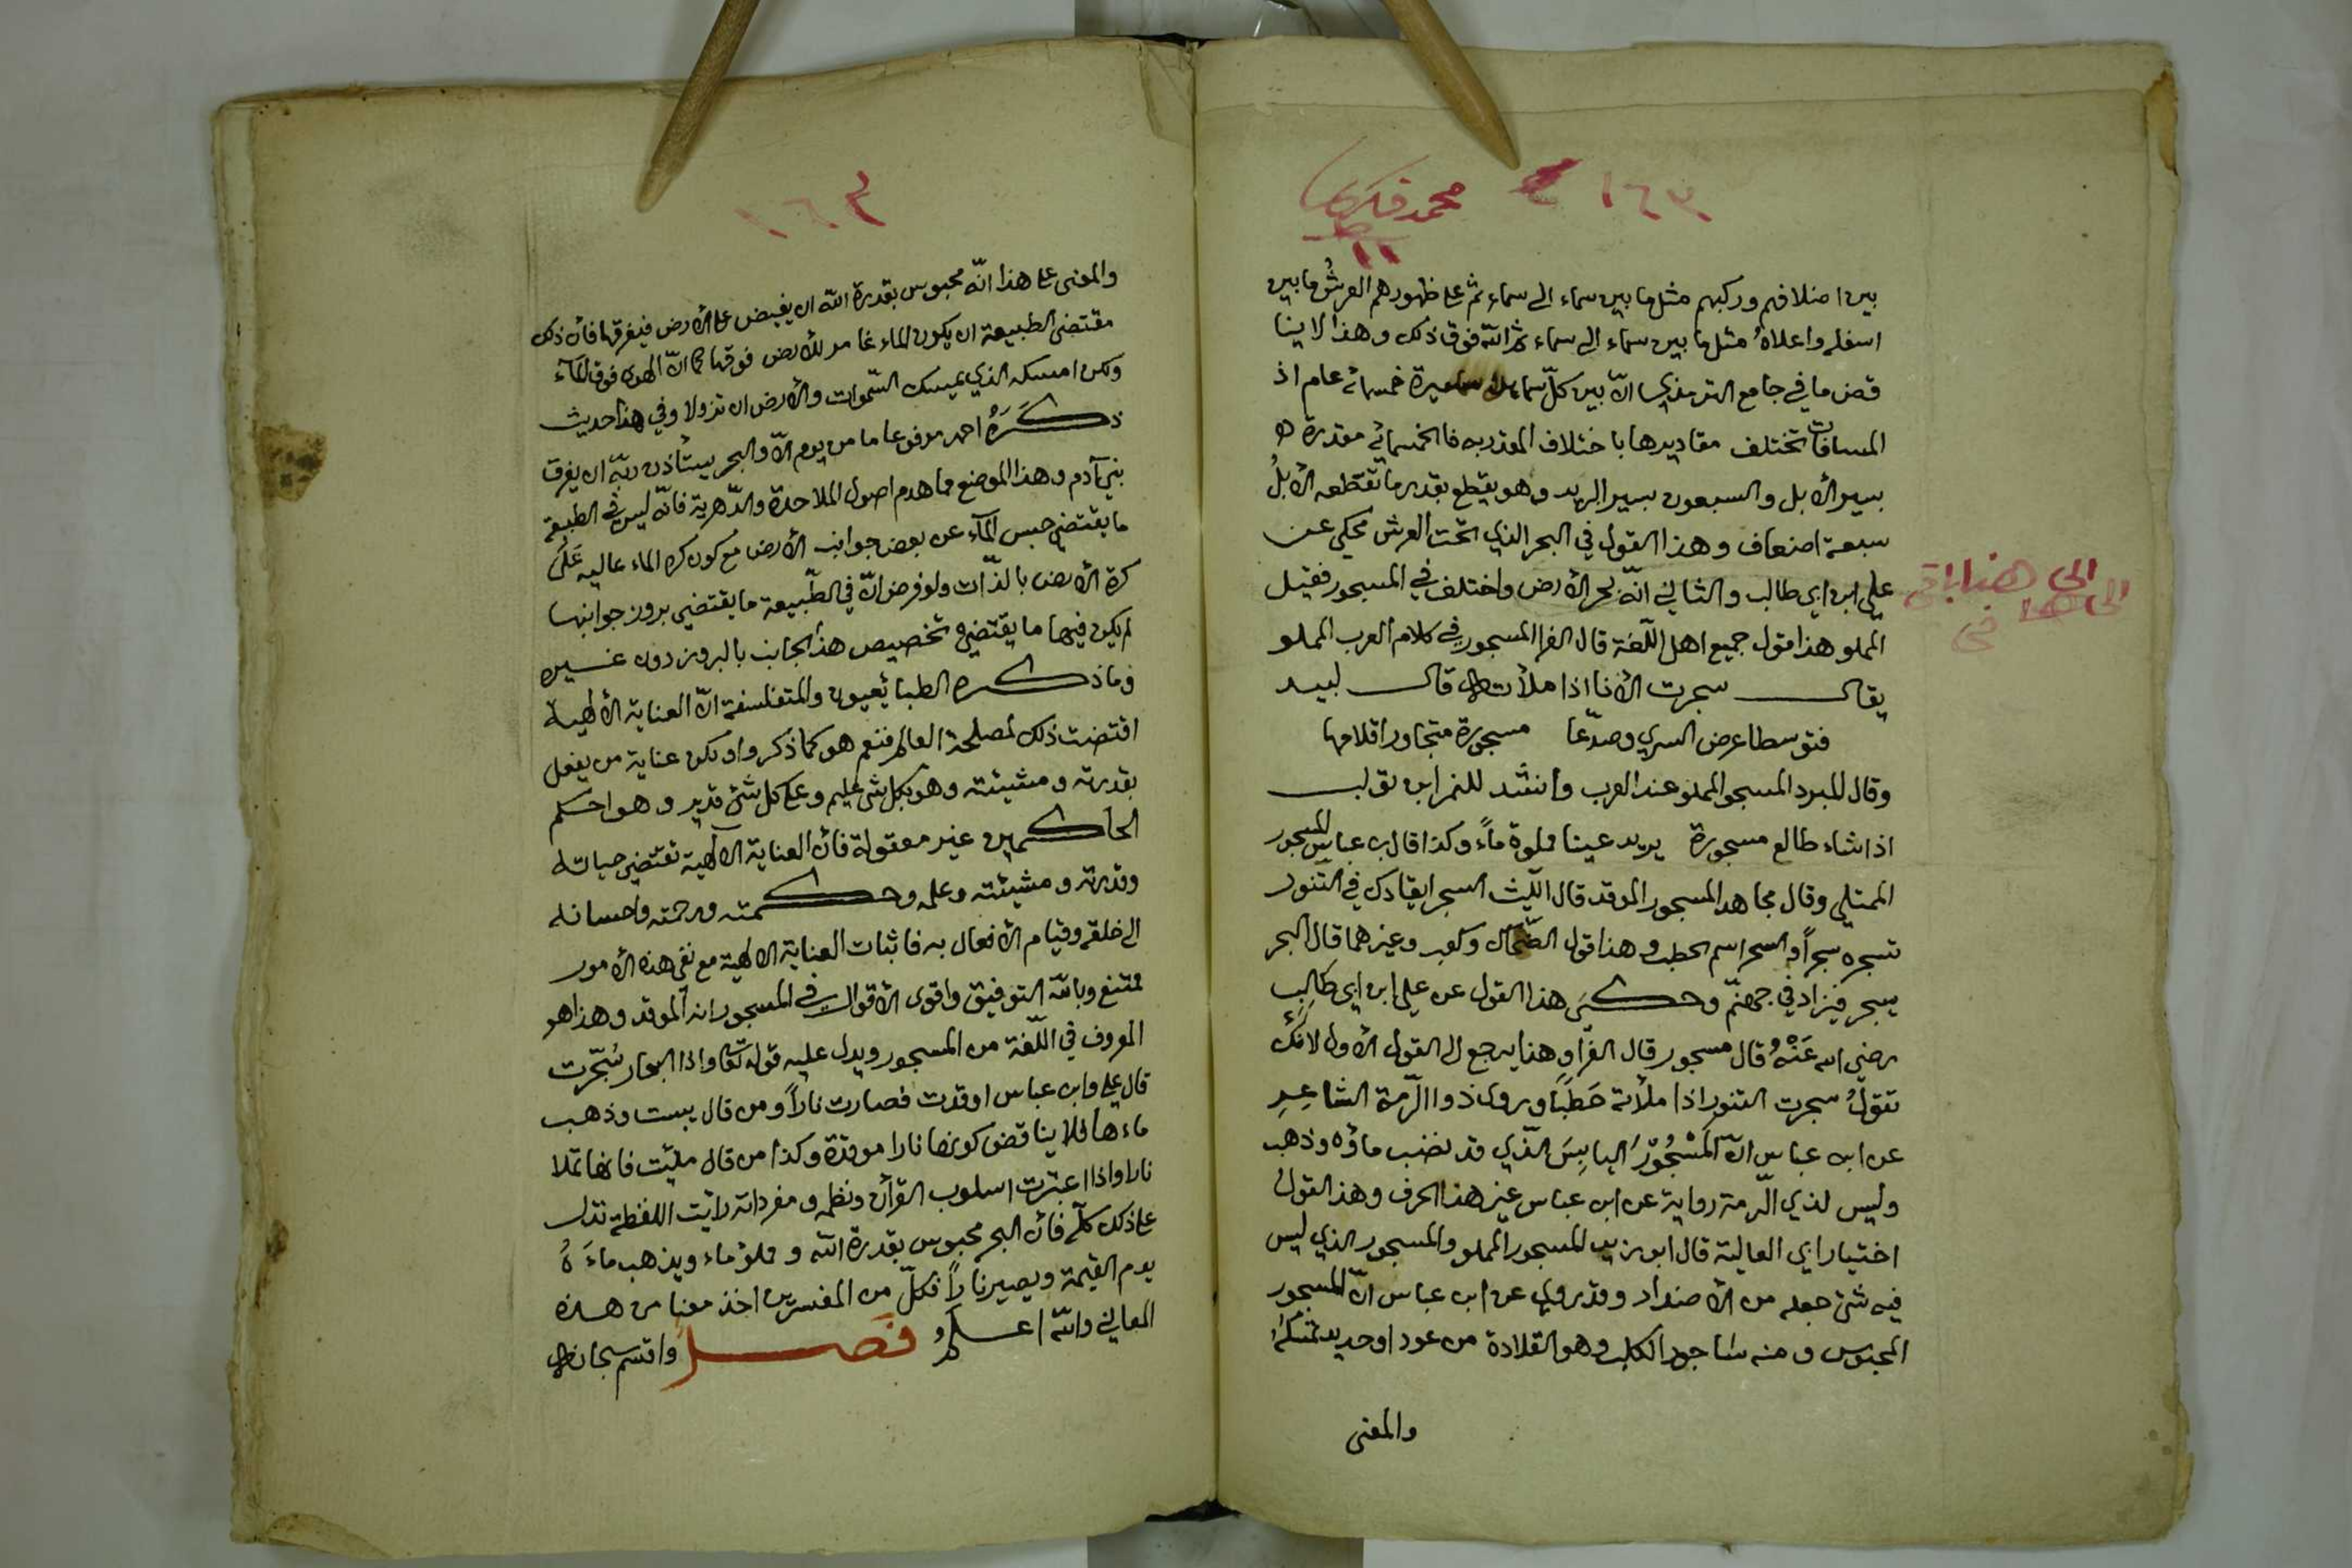 ١٦٣ محمد فكري
بين اضلافهم وركبهم مثل ما بين سماء الى سماء ثم على ظهورهم العرشُ ما بين
اسفله واعلاهُ مثل ما بين سماء الى سماء ثم الله فوق ذلك وهذا لا ينا
قض ما في جامع الترمذي انّ بين كلّ سمائين مسيرة خمسمائه عام اذ
المسافات تختلف مقاديرها باختلاف المقدر به فالخمسمائه مقدرة
بسير الأبل والسبعون بسير البريد وهو يقطع بقدر ما تقطعه الأبلُ
سبعة اضعاف وهذا القول في البحر الذي تحت العرش محكي عن
علي ابن ابي طالب والثاني انّه بحر الأرض واختلف في المسجور فقيل
المملو هذا قول جميع اهل اللّغة قال الفرا المسجور في كلام العرب المملو
يقال سجرت الأنا اذا ملأته قال لبيد
فتوسطا عرض السري وصدّعا مسجورة متجاورا قلامها
وقال المبرد المسجو المملو عند العرب وانشد للنمر ابن تولب
اذا شاء طالع مسجورة يريد عينا مملوة ماءً وكذا قال ابن عباس المسجور
الممتلي وقال مجاهد المسجور الموقد قال اللّيث السجر ايقادك في التنّور
تسجره سجراً والسجر اسم الحطب وهذا قول الضّحاك وكعب وغيرهما قال البحر
يسجر فيزاد في جهنّم وحكي هذا القول عن علي ابن ابي طالبِ
رضي الله عَنْهُ قال مسجور قال الفرّا وهذا يرجع الى القول الأول لانّك
تقولُ سجرت التنور اذا ملأته حَطَبًا وروى ذوا الرّمة الشاعِرِ
عن ابن عباس انّ المَسْجُوُرَ اليابِسَ الّذي قد نضب ماؤه وذهب
وليس لذي الرّمة رواية عن ابن عباس غير هذا الحرف وهذ القول
اختيار ابي العالية قال ابو زيد المسجور المملو والمسجور الذي ليس
فيه شئ جعله من الأضداد وقد روي عن ابن عباس انّ المسجور
المحبوس ومنه ساجور الكلب وهو القلادة من عود او حديد تمسكه
والمعنى
الى هنا
١٦٣
والمعنى على هذا انّه محبوس بقدرة الله ان يفيض على الأرض فيغرقها فأن ذلك
مقتضى الطبيعة ان يكون الماء غامر للأرض فوقها كما انّ الهوى فوق المآء
ولكن امسكه الذي يمسك السّموات والأرض ان تزولا وفي هذا حديث
ذكَرَهُ احمد مرفوعا ما من يوم الّا والبحر يستأذن ربّه ان يغرق
بني آدم وهذا الموضع مما هدم اصول الملاحدة والدّهرية فانّه ليس في الطبيعة
ما يقتضي حبس المآء عن بعض جوانب الأرض مع كون كرة الماء عاليه عَلَى
كرة الأرض بالذّات ولو فرض انّ في الطّبيعة ما يقتضي بروز جوانبها
لم يكن فيها ما يقتضي تخصيص هذا الجانب بالبروز دون غيره
وما ذكره الطبايعيون والمتفلسفة انّ العناية الألهية
اقتضت ذلك لمصلحة العالم فنعم هو كما ذكروا ولكن عناية من يفعل
بقدرته ومشيئته وهو بكل شي عليم وعلى كل شئ قدير وهو احكم
الحاكمين غير معقولة فأن العناية الالهية تقتضي حياته
وقدرته ومشيئته وعلمه وحكمته ورحمته واحسانه
الى خلقه وقيام الأفعال به فاثبات العناية الالهية مع نفي هذه الأمور
ممتنع وبالله التوفيق واقوى الأقوال في المسجور انه الموقد وهذا هو
المعروف في اللّغة من المسجور ويدل عليه قوله تعالى واذا البحار سُجّرت
قال علي وابن عباس اوقدت فصارت ناراً ومن قال يبست وذهب
ماءها فلا يناقض كونها نارا موقدة وكذا من قال ملئت فانها تملا
نارا واذا اعتبرت اسلوب القرأن ونظمه ومفرداته رأيت اللفظة تدل
على ذلك كلّه فأن البحر محبوس بقدرة الله ومملؤ ماء ويذهب ماءَهُ
يوم القيمة ويصير ناراً فكلّ من المفسّرين اخذ معنا من هذه
المعاني والله اعلمُ فَصل واقسم سبحانه